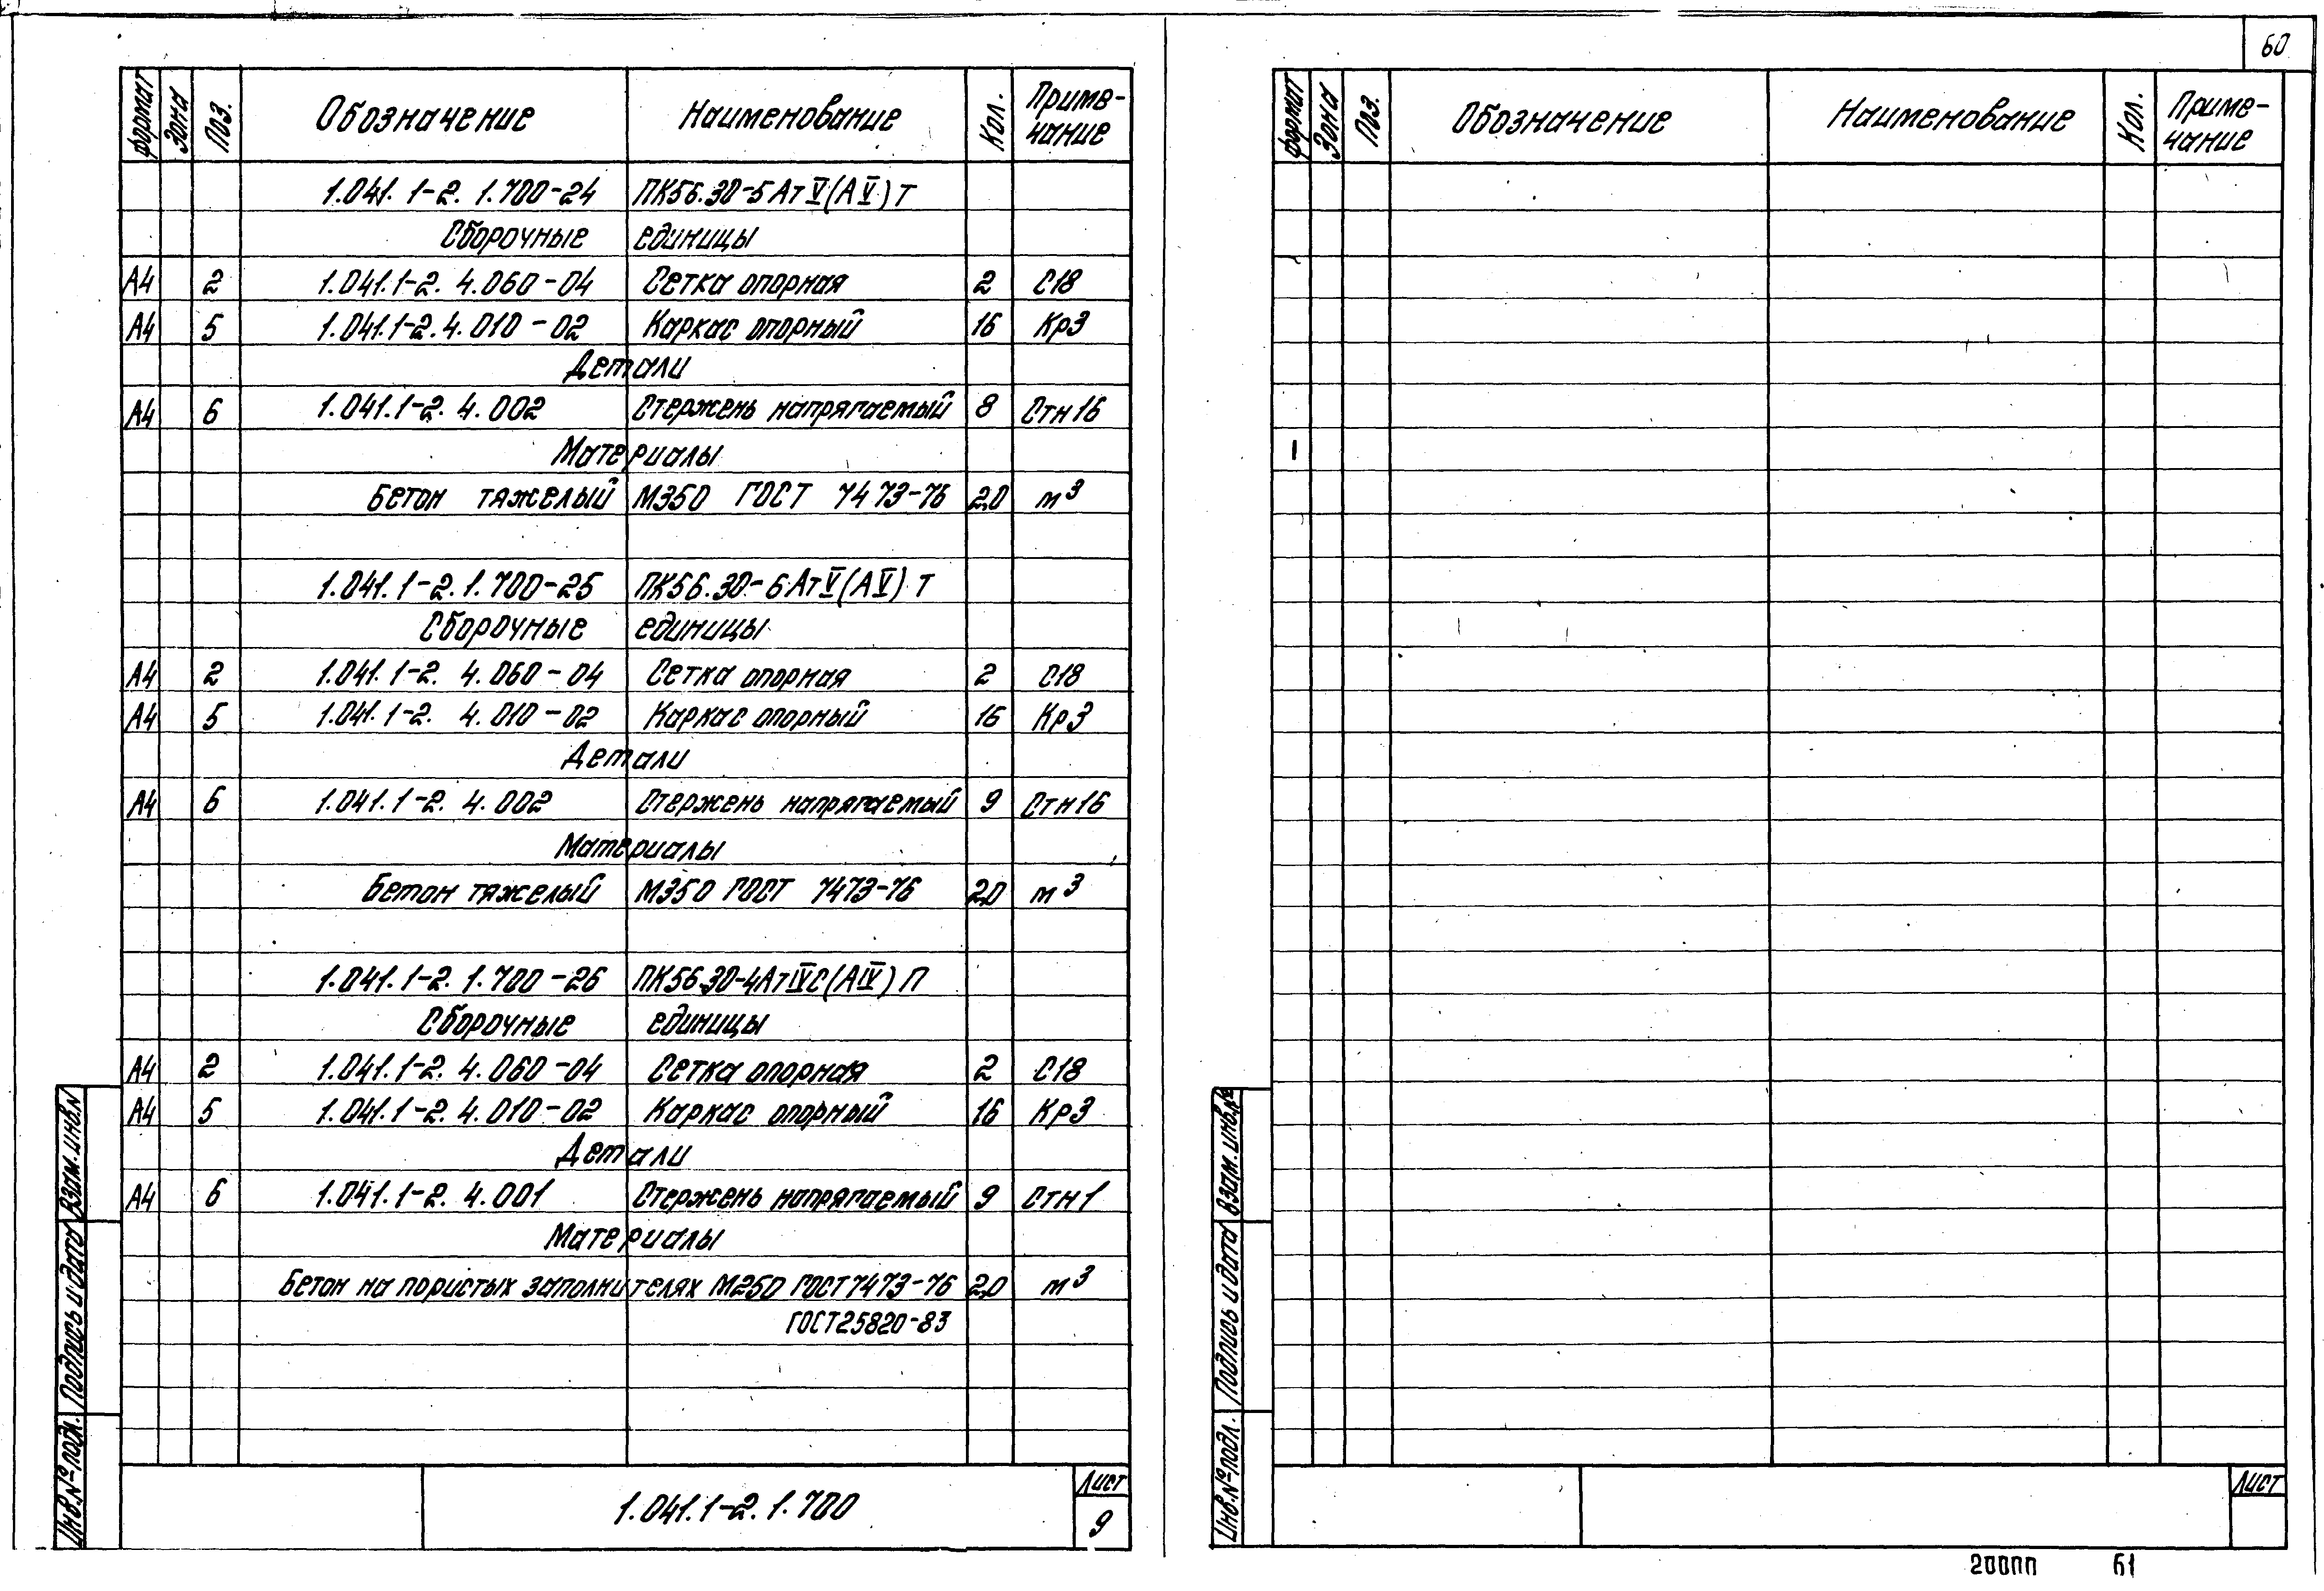 60
формат Зона Поз. Обозначение Наименование Кол. Приме-
чание
1.041.1-2.1.700-24 ПК56.30-5АтV(АV)Т
Сборочные единицы
А4 2 1.041.1-2.4.060-04 Сетка опорная 2 С18
А4 5 1.041.1-2.4.010-02 Каркас опорный 16 Кр3
Детали
А4 6 1.041.1-2.4.002 Стержень напрягаемый 8 Стн16
Материалы
Бетон тяжелый М350 ГОСТ 7473-76 2,0 м³
1.041.1-2.1.700-25 ПК56.30-6АтV(АV)Т
Сборочные единицы
А4 2 1.041.1-2.4.060-04 Сетка опорная 2 С18
А4 5 1.041.1-2.4.010-02 Каркас опорный 16 Кр3
Детали
А4 6 1.041.1-2.4.002 Стержень напрягаемый 9 Стн16
Материалы
Бетон тяжелый М350 ГОСТ 7473-76 2,0 м³
1.041.1-2.1.700-26 ПК56.30-4АтIVС(АIV)П
Сборочные единицы
А4 2 1.041.1-2.4.060-04 Сетка опорная 2 С18
А4 5 1.041.1-2.4.010-02 Каркас опорный 16 Кр3
Детали
А4 6 1.041.1-2.4.001 Стержень напрягаемый 9 Стн1
Материалы
Бетон на пористых заполнителях М250 ГОСТ 7473-76 2,0 м³
ГОСТ25820-83
Инв.№подл. Подпись и дата Взам.инв.N
1.041.1-2.1.700
Лист
9
формат Зона Поз. Обозначение Наименование Кол. Приме-
чание
Инв.№подл. Подпись и дата Взам.инв.№
Лист
20000 61